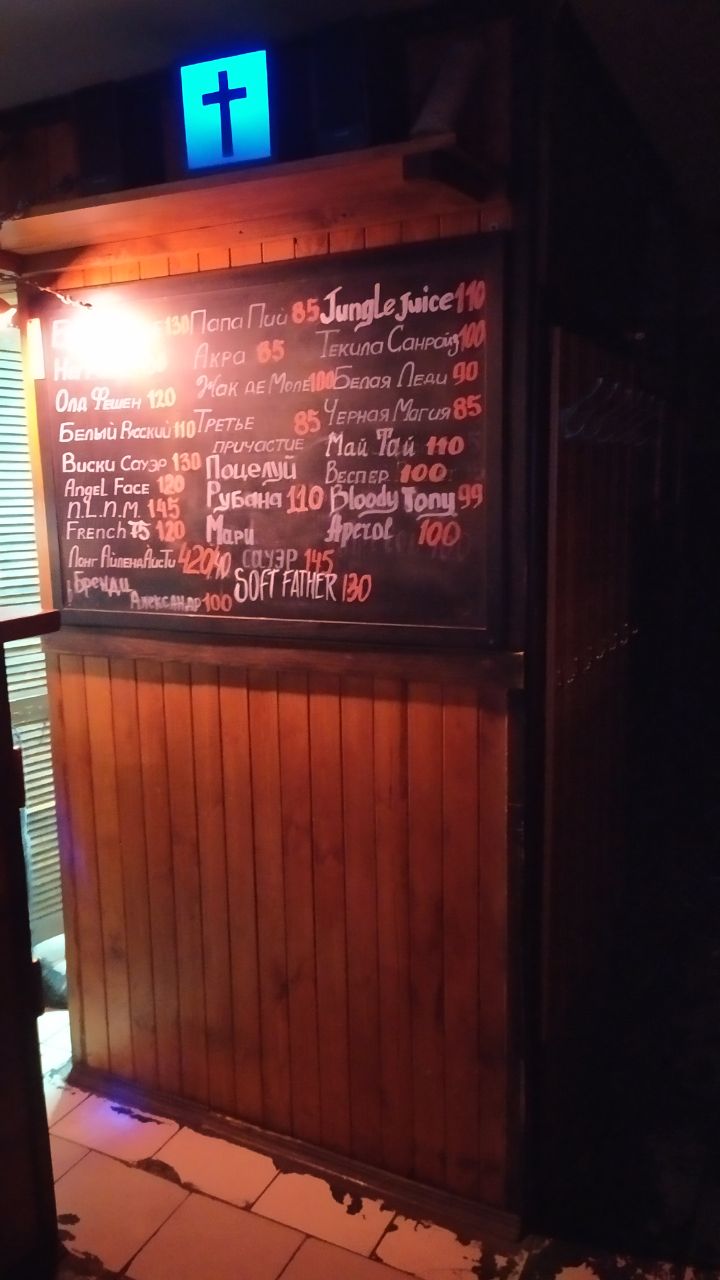 130
Олд Фешен 120
Белый Русский 110
Виски Сауэр 130
Angel Face 120
N.L.N.M. 145
French 75 120
Лонг Айленд Айс Ти 420
Бренди
Александр 100
Папа Пий 85
Акра 85
Жак де Моле 100
Третье 85
причастие
Поцелуй
Рубана 110
Мари
сауэр 145
SOFT FATHER 130
Jungle Juice 110
Текила Санрайз 100
Белая Леди 90
Черная Магия 85
Май Тай 110
Веспер 100
Bloody Tony 99
Aperol 100